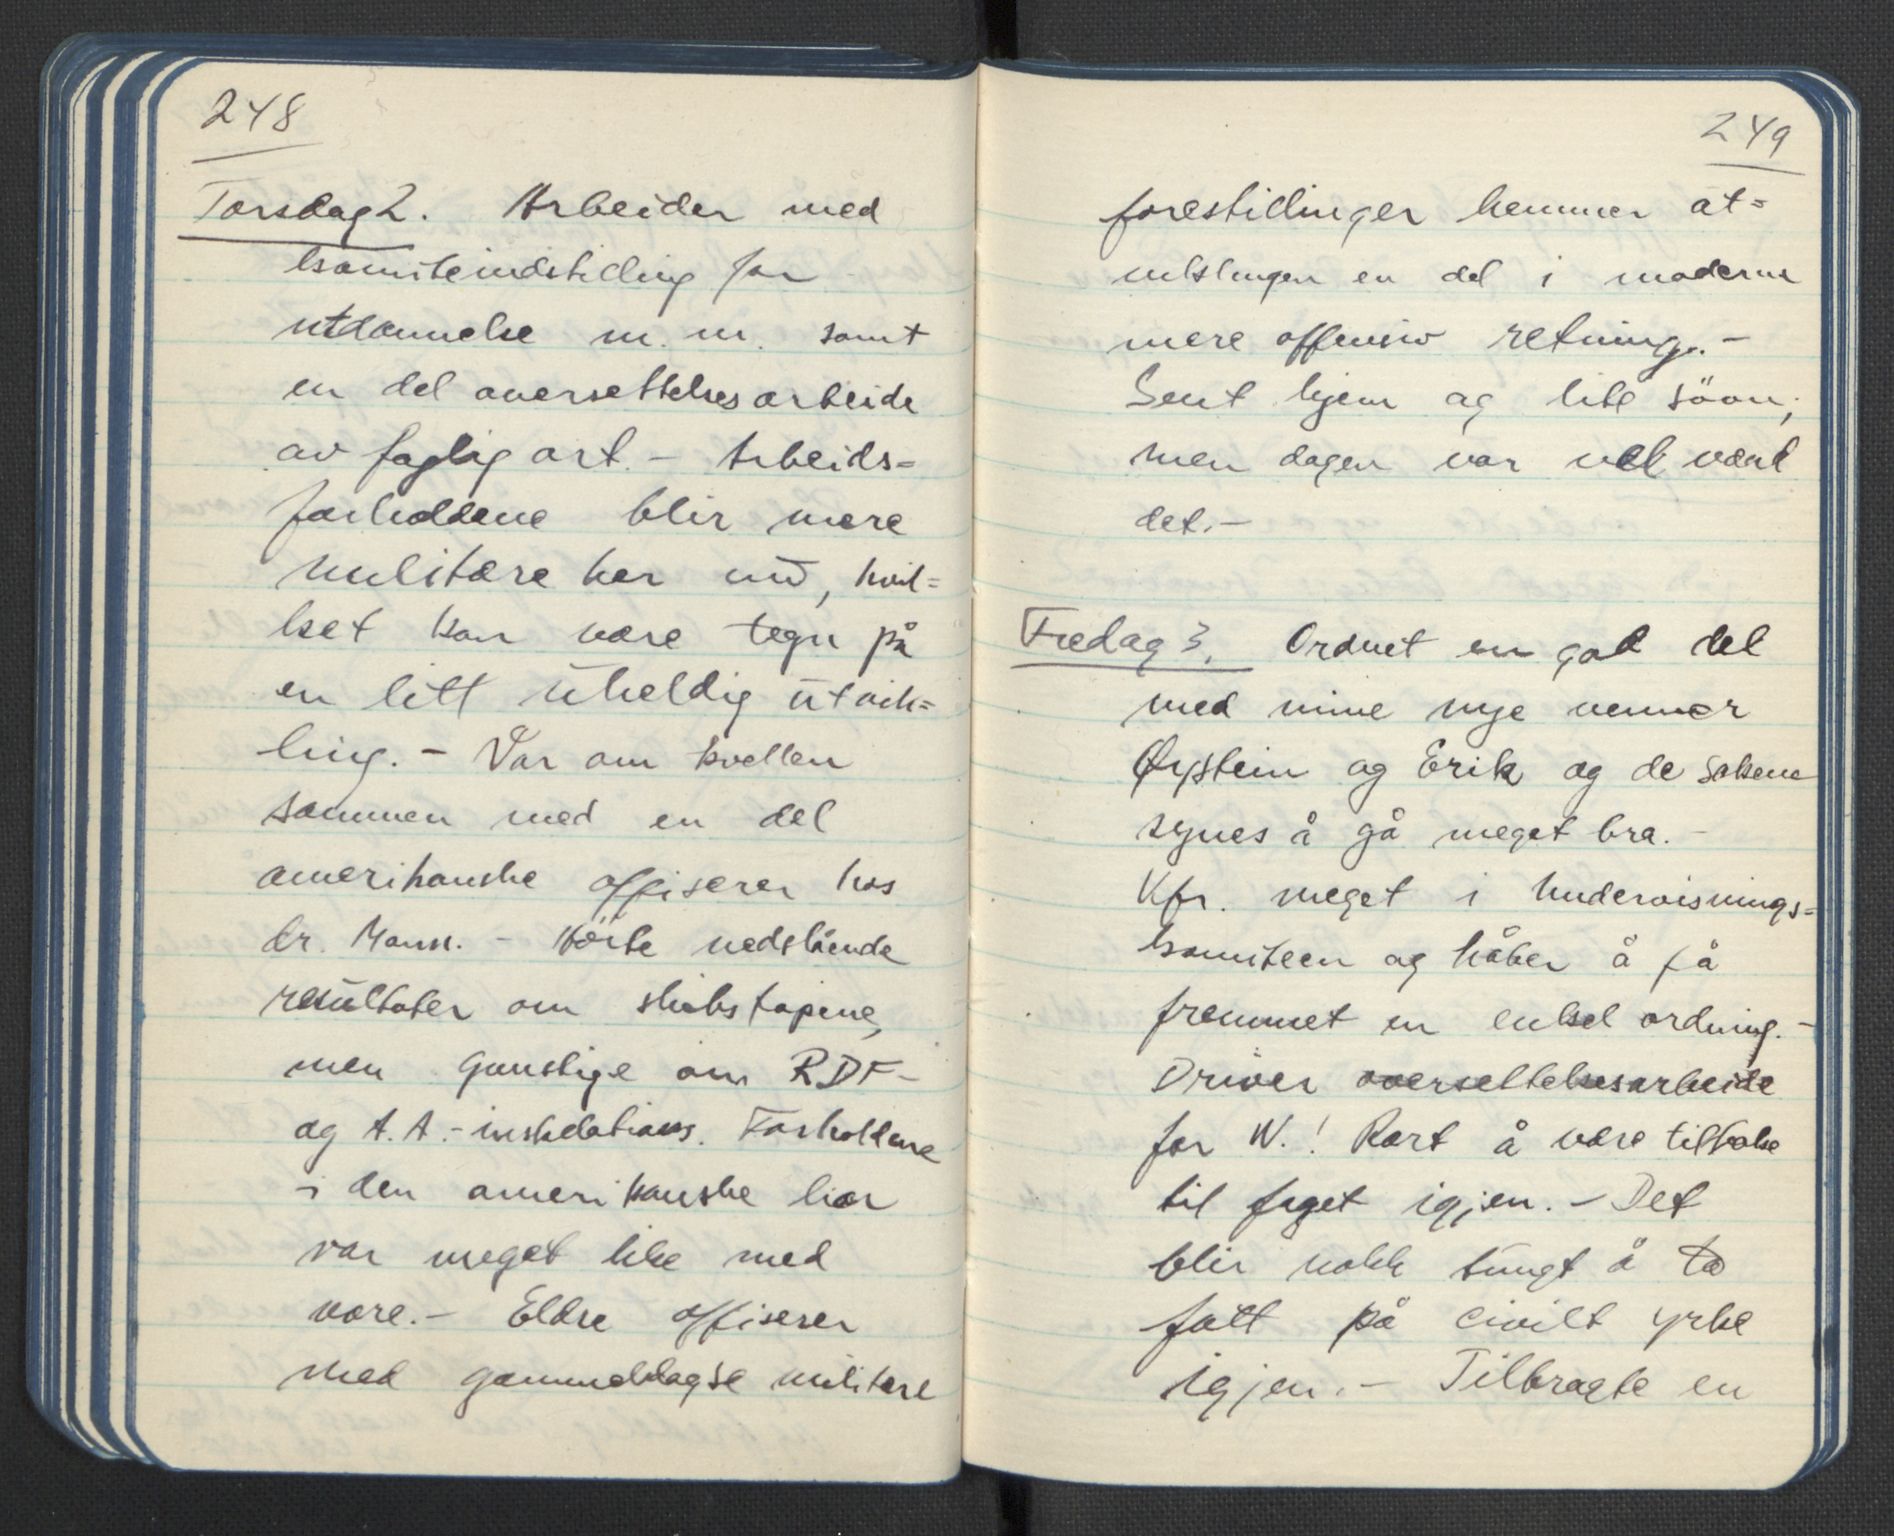 248
Torsdag 2. Arbeider med
komiteindstilling for
utdannelse m. m. samt
en del oversettelsesarbeide
av faglig art. – Arbeids=
forholdene blir mere
militære her nu, hvil=
ket kan være tegn på
en litt uheldig utvik=
ling. – Var om kvellen
sammen med en del
amerikanske offiserer hos
dr. Mann. – Hörte nedslående
resultater om skibstapene,
men gunstige om RDF-
og A.A.-
Forholdene
i den amerikanske hær
var meget like med
våre. – Eldre offiserer
med gammeldagse militære
249
forestillinger hemmer ut=
viklingen en del i moderne
mere offensiv retning. –
Sent hjem og lite sövn,
men dagen var vel værd
det. –
Fredag 3. Ordnet en god del
med mine nye venner
Øystein og Erik og de sakene
synes å gå meget bra. –
Kfr. meget i Undervisnings=
komiteen og håber å få
fremmet en enkel ordning. –
Driver oversettelsesarbeide
for W.! Rart å være tilbake
til faget igjen. – Det
blir nokk tungt å ta
fatt på civilt yrke
igjen. – Tilbragte en